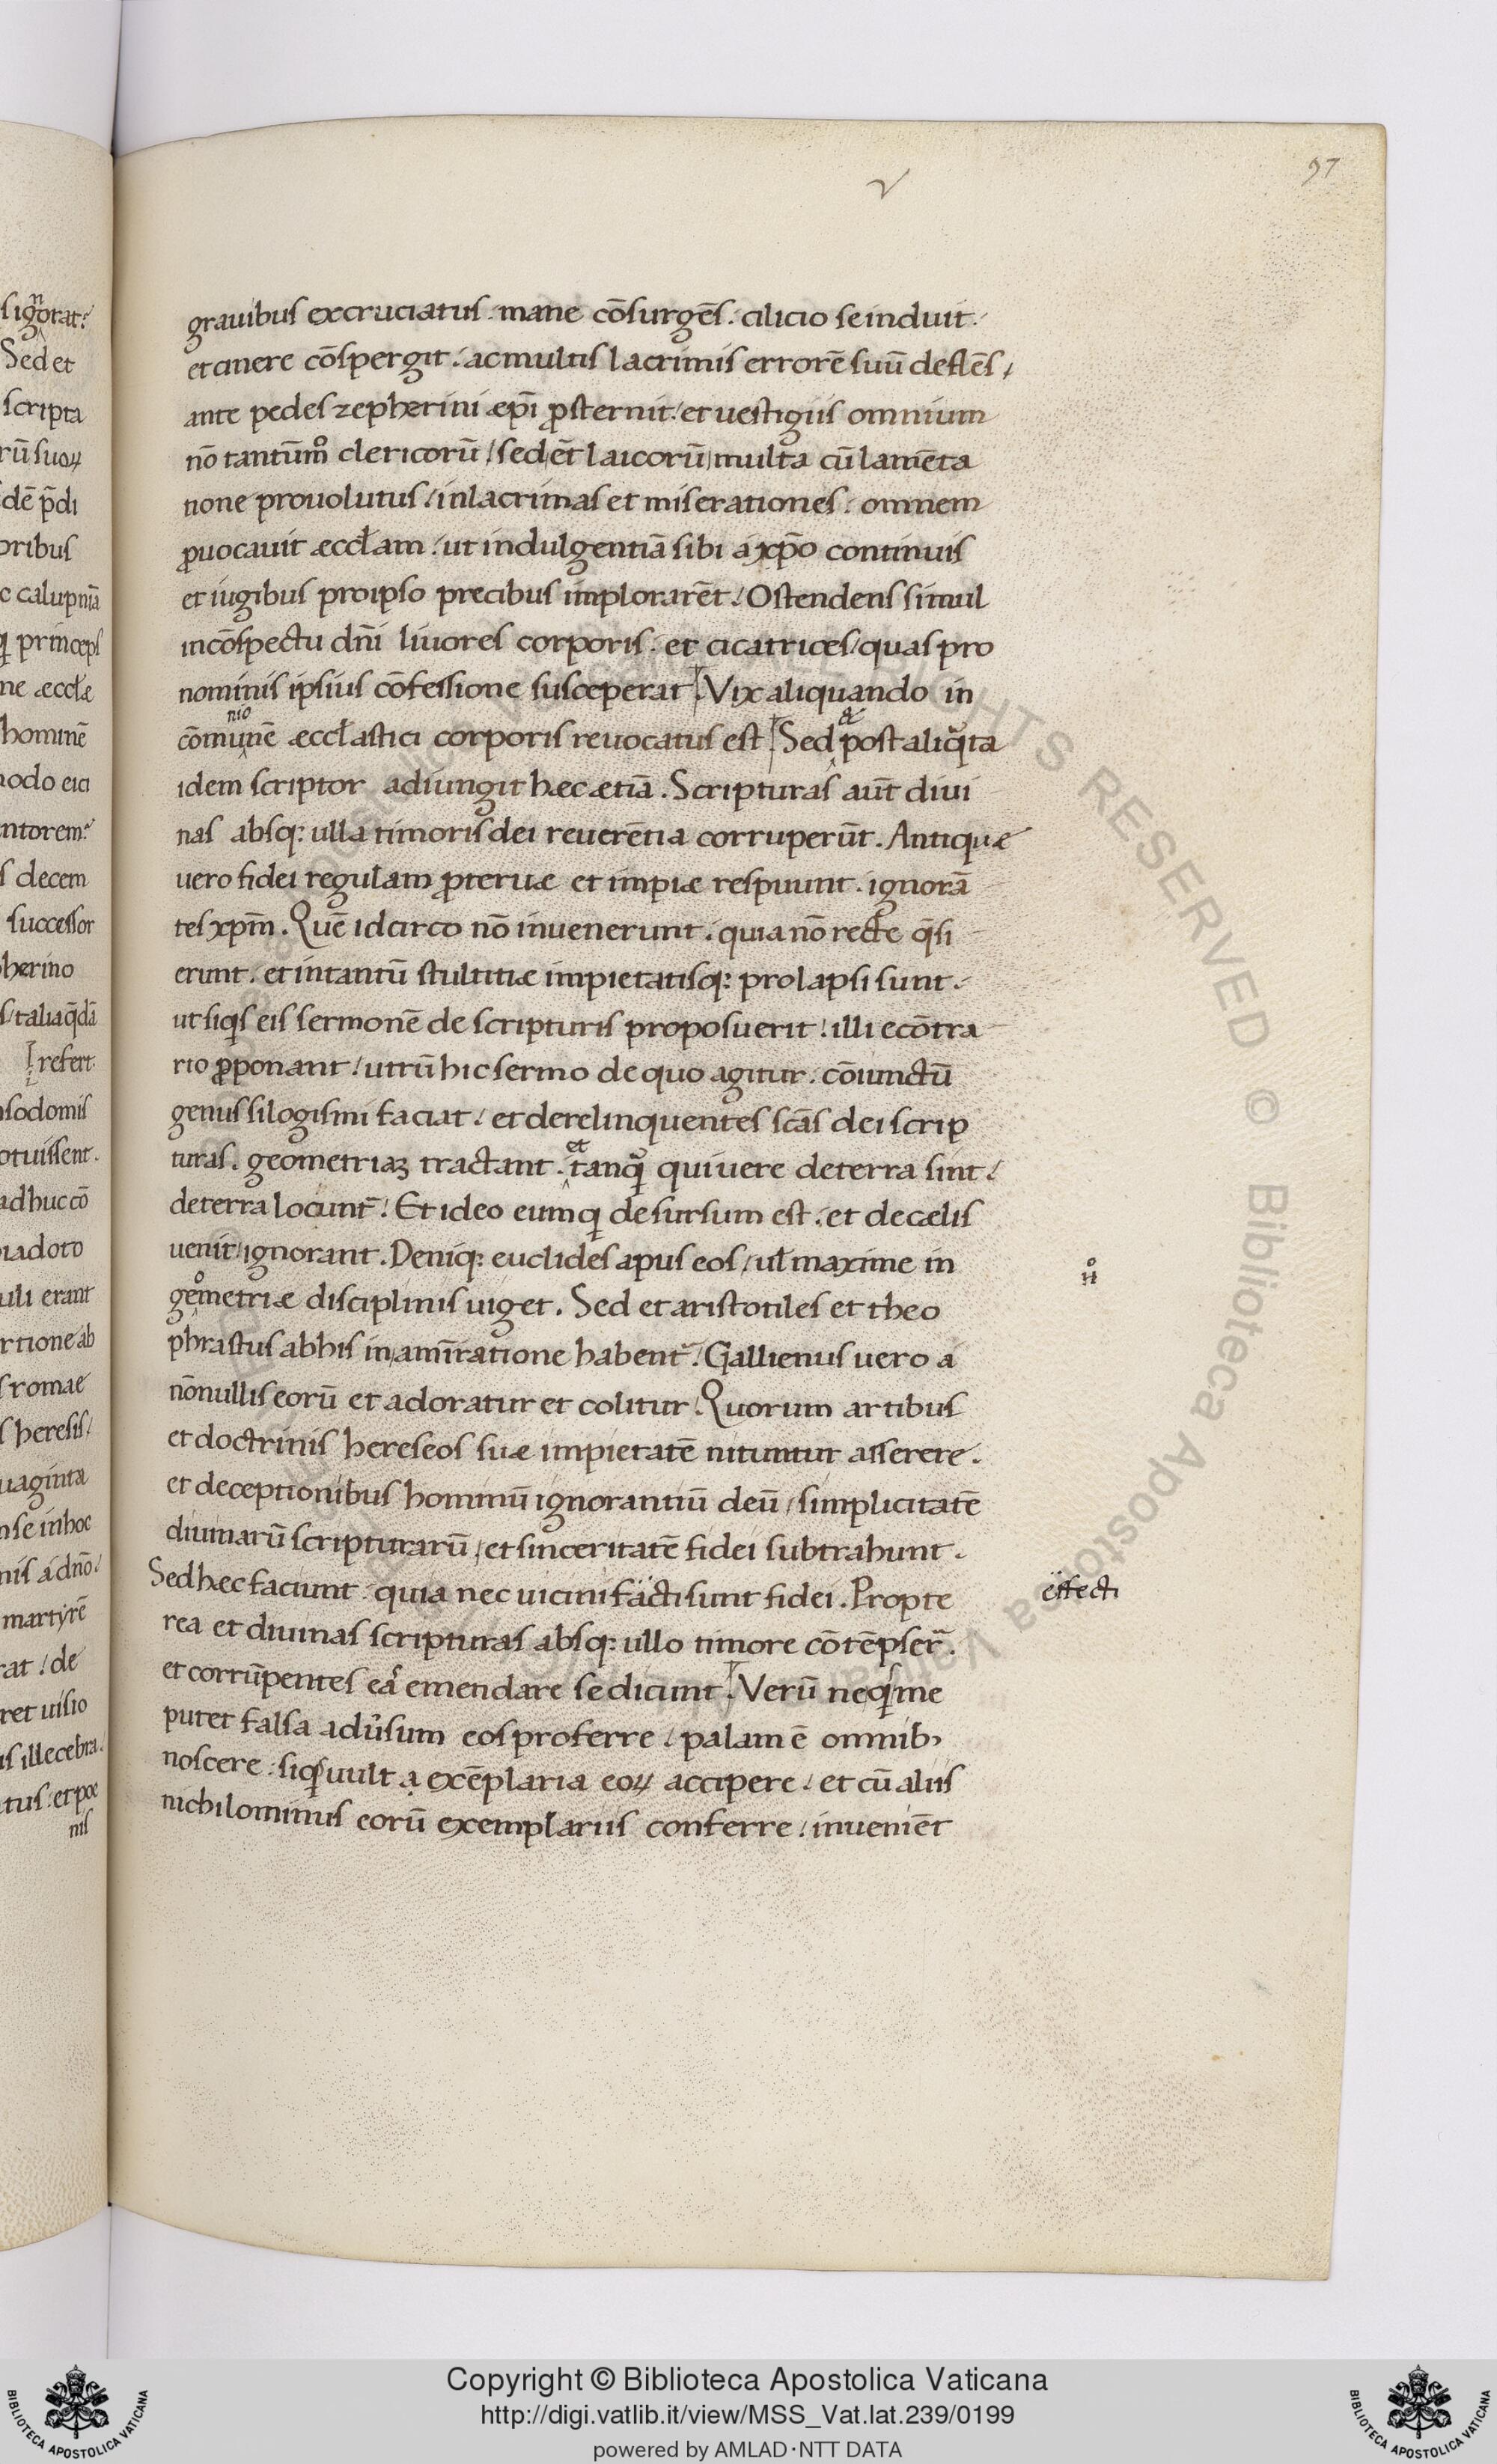 97
grauibus excruciatus . mane cōsurgēs . cilicio se induit .
et cinere cōspergit . ac multis lacrimis errorē suū deflēs /
ante pedes zepherini æpī ꝓsternit . et uestigiis omnium
nō tantūm̊ clericorū / sed ēt laicorū multa cū lamēta
tione prouolutus / in lacrimas et miserationes . omnem
ꝓuocauit æccłam . ut indulgentiā sibi a xp̄o continuis
et iugibus pro ipso precibus implorarēt . Ostendens simul
in cōspectu dn̄i liuores corporis . et cicatrices / quas pro
nominis ipsius cōfessione susceperat . Vix aliquando in
nio
cōmunē æccłastici corporis reuocatus est . Sed & post aliq̊ta
idem scriptor adiungit hæc ætiā . Scripturas aūt diui
nas absq: ulla timoris dei reuerētia corruperūt . Antiquæ
uero fidei regulam ꝓteruæ et impiæ respuunt . ignorā
tes xpm̄ . Quē idcirco nō inuenerunt . quia nō recte q̄si
erunt . et in tantū stultitiæ impietatisq: prolapsi sunt .
ut siqͥs eis sermonē de scripturis proposuerit ! illi e cōtra
rio ꝓponant / utrū hic sermo de quo agitur . cōiunctū
genus silogismi faciat / et derelinquentes scās dei scrip
turas . geometriaȝ tractant . et tanqͣ qui uere de terra sint /
de terra locunt̄ . Et ideo eum qͥ de sursum est . et de cælis
uenit ignorant . Deniq: euclides apus eos / uł maxime in
n̊
geometriæ disciplinis uiget . Sed et aristotiles et theo
phrastus ab his in am̄iratione habent̄ . Gallienus uero a
nōnullis eorū et adoratur et colitur . Quorum artibus
et doctrinis hereseos suæ impietatē nituntur asserere .
et deceptionibus hominū ignorantiū deū / simplicitatē
diuinarū scripturarū / et sinceritatē fidei subtrahunt .
Sed hæc faciunt . quia nec uicini facti sunt fidei . Propte
effecti
rea et diuinas scripturas absq: ullo timore cōtēpser̄ .
et corrūpentes eas emendare se dicunt . Verū ne qͥs me
putet falsa adu̓sum eos proferre / palam ē omnib;
noscere . siqͥs uult a exēplaria eoꝝ accipere . et cū aliis
nichilominus eorū exemplariis conferre . inueniēt
Copyright © Biblioteca Apostolica Vaticana
http://digi.vatlib.it/view/MSS_Vat.lat.239/0199
powered by AMLAD·NTT DATA